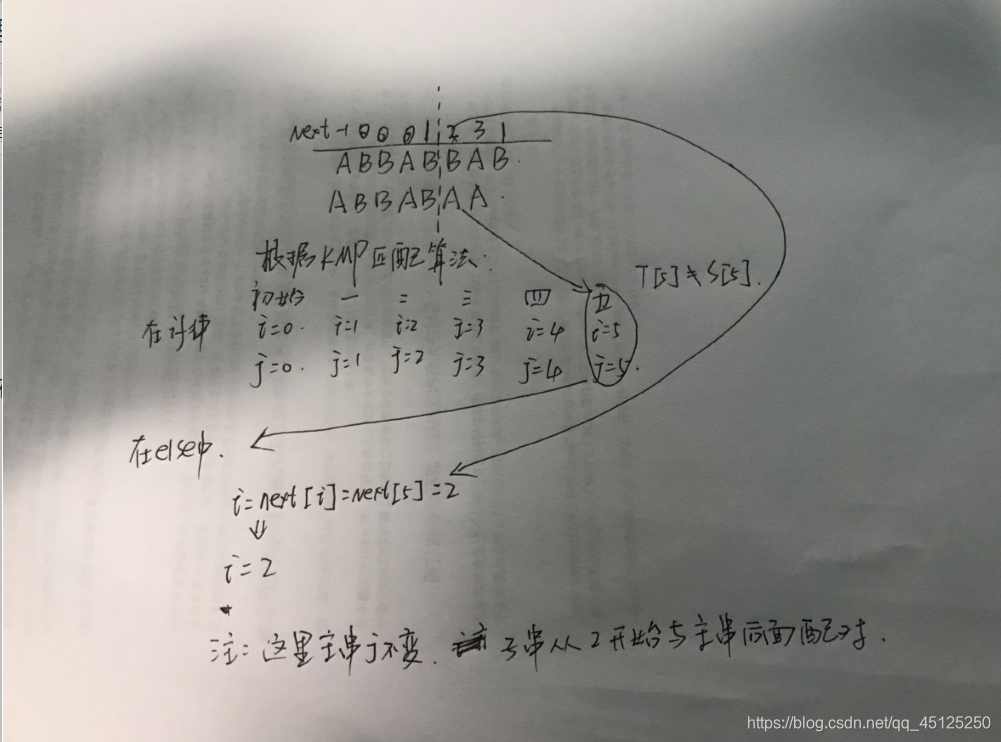 next -1 0 0 0 1 2 3 1
A B B A B B A B .
A B B A B A A .
根据KMP匹配算法:
初始 一 二 三 四 五 T[5]≠S[5].
i=0. i=1 i=2 j=3 i=4 i=5
j=0. j=1 j=2 j=3 j=4 j=5.
在else中.
i=next[i]=next[5]=2
i=2
注: 这里主串j不变. 子串从2开始与主串后面配对.
https://blog.csdn.net/qq_45125250